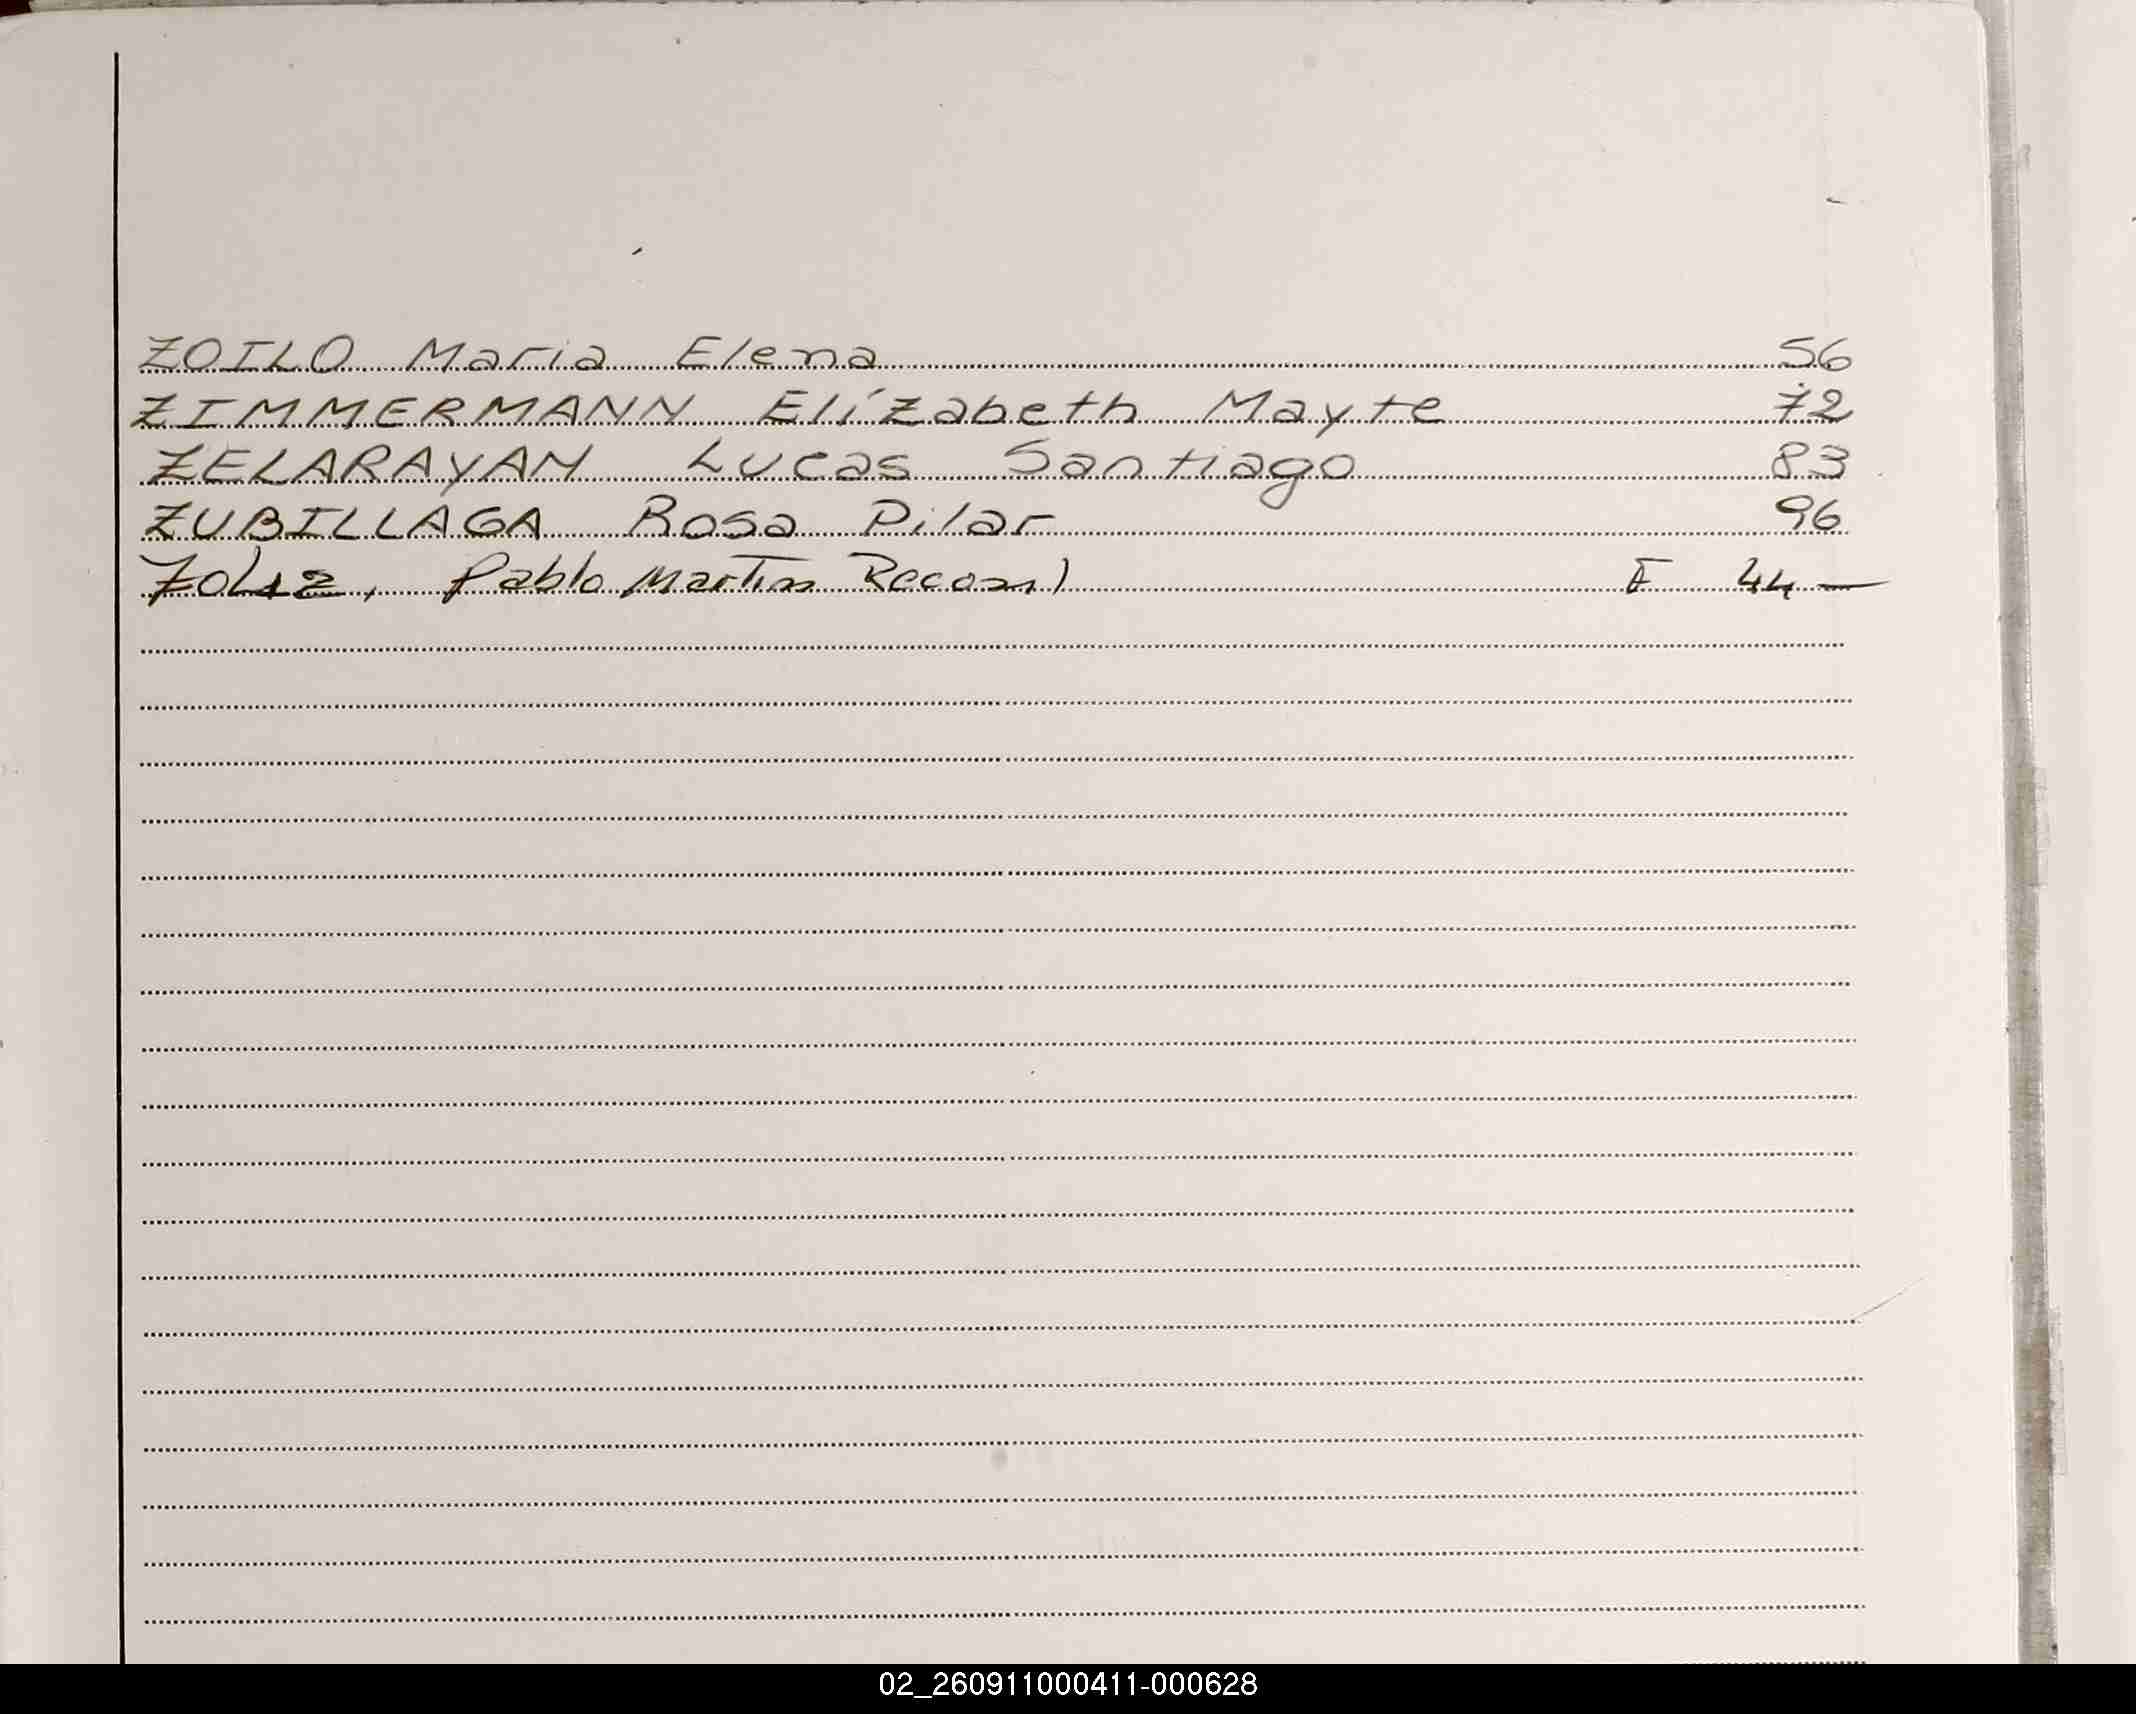 ZOILO Maria Elena 56
ZIMMERMANN Elízabeth Mayte 72
ZELARAYAN Lucas Santiago 83
ZUBILLAGA Rosa Pilar 96
Pablo Martin F 44
02_260911000411-000628